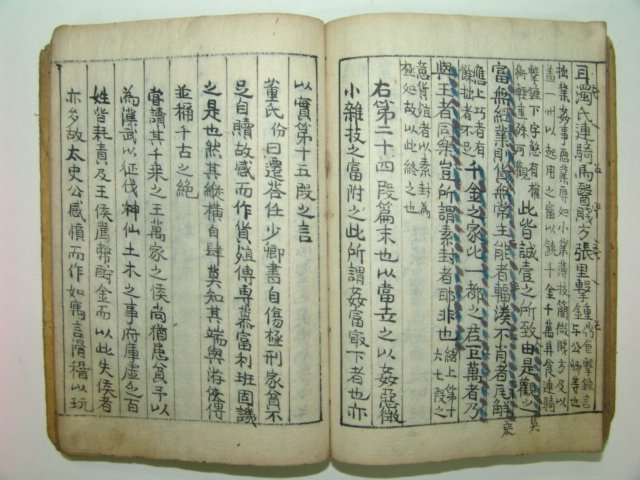 耳濁氏連騎馬醫賤方張里擊鍾
此皆誠壹之所致由是觀之
富無經業則貨無常主能者輻湊不肖者瓦解
應上巧者有
餘拙者不足
千金之家比一都之君巨萬者乃
與王者同樂豈所謂素封者耶非也
總上第十
六七段之
意貨殖者以素封為
極起故以此終之也
右第二十四段篇末也以當去之以姦惡微
小雜技之富附之此所謂姦富最下者也亦
以實第十五段之言
董氏份曰遷答任少卿書自傷極刑家貧不
足自贖故感而作貨殖傳專慕富利班固譏
之是也然其縱橫自肆莫知其端與游俠傳
並稱千古之絕
嘗讀其千乘之王萬家之侯尚猶患貧予以
為漢武以征伐神仙土木之事府庫虛乏百
姓皆耗責及王侯薦幣酎金而以此失侯者
亦多故太史公感憤而作如寓言滑稽以玩